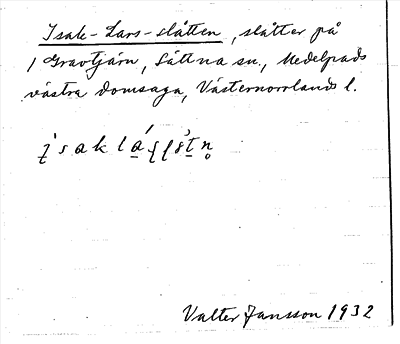 Isak-Lars-slåtten, slåtter på
1 Gravtjärn, Sättna sn., Medelpads
västra domsaga, Västernorrlands l.
Valter Jansson 1932